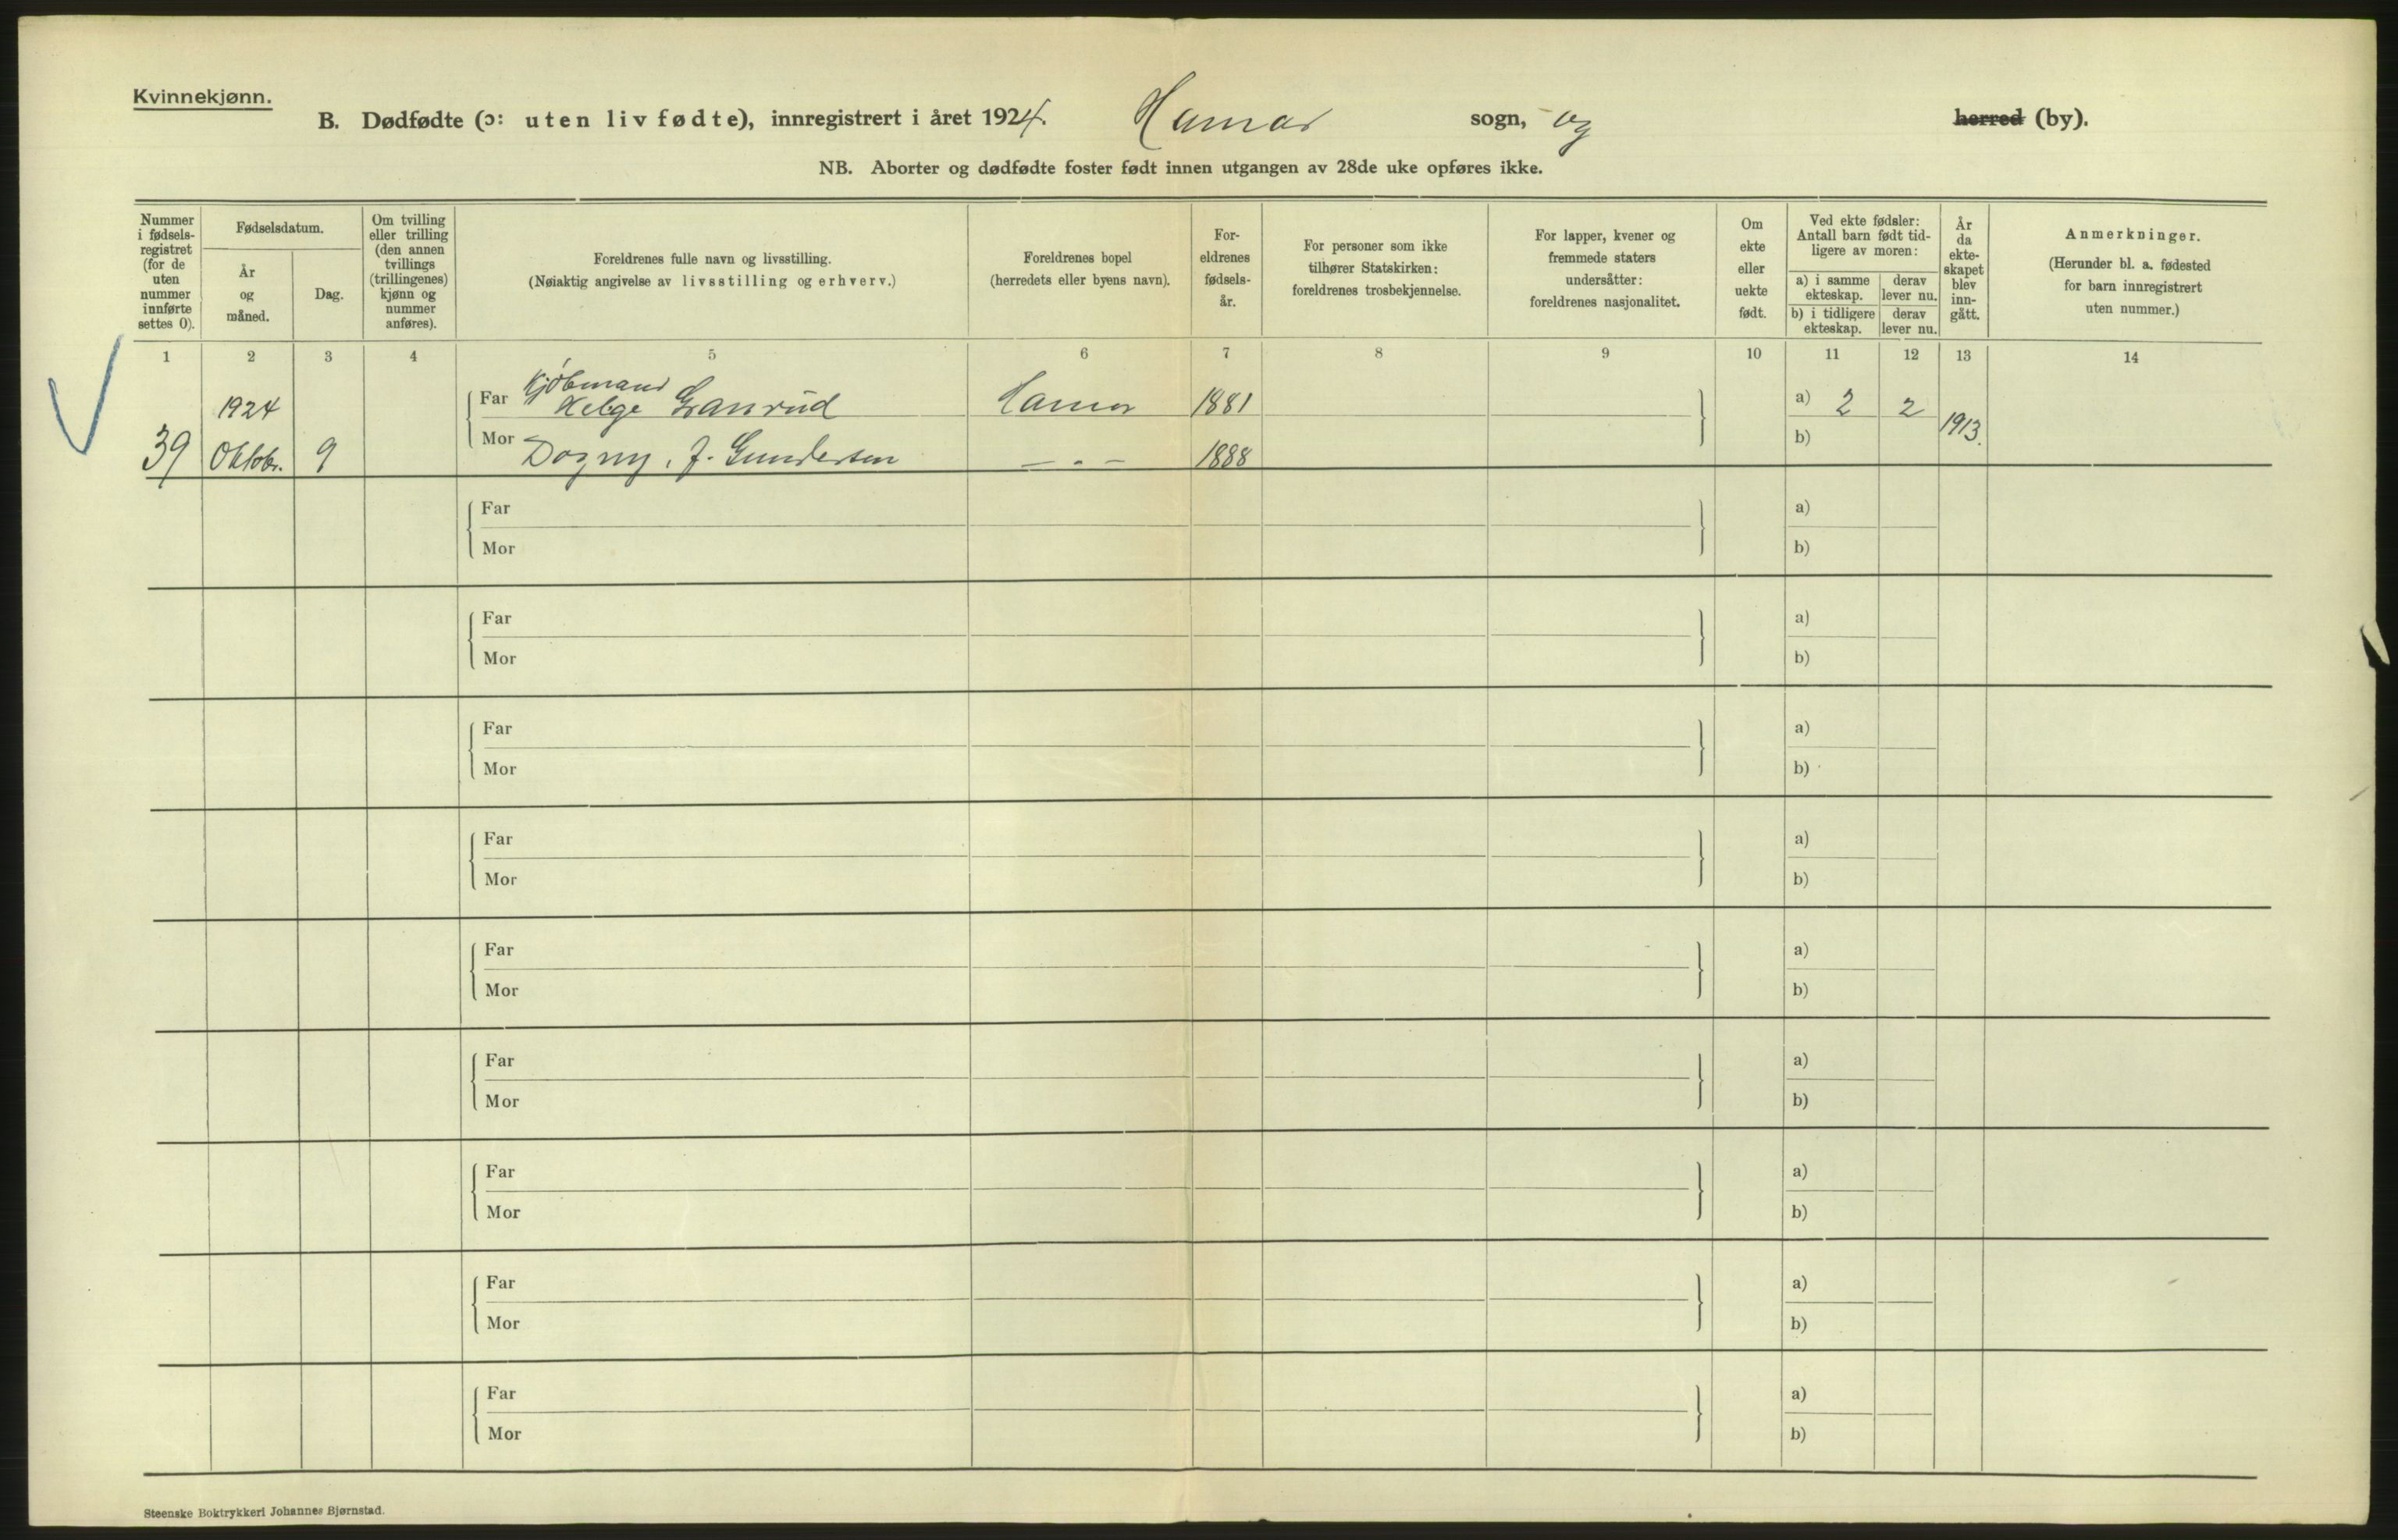 Kvinnekjønn.
B. Dødfødte (ɔ: uten liv fødte), innregistrert i året 1924. Hamar sogn, og herred (by).
NB. Aborter og dødfødte foster født innen utgangen av 28de uke opføres ikke.
Nummer i fødsels-registret (for de uten nummer innførte settes 0).
Fødselsdatum.
År og måned.
Dag.
Om tvilling eller trilling (den annen tvillings (trillingenes) kjønn og nummer anføres).
Foreldrenes fulle navn og livsstilling.
(Nøiaktig angivelse av livsstilling og erhverv.)
Foreldrenes bopel
(herredets eller byens navn).
For-eldrenes fødsels-år.
For personer som ikke tilhører Statskirken: foreldrenes trosbekjennelse.
For lapper, kvener og fremmede staters undersåtter: foreldrenes nasjonalitet.
Om ekte eller uekte født.
Ved ekte fødsler: Antall barn født tid-ligere av moren:
a) i samme ekteskap.
derav lever nu.
b) i tidligere ekteskap.
derav lever nu.
År da ekte-skapet blev inn-gått.
Anmerkninger.
(Herunder bl. a. fødested for barn innregistrert uten nummer.)
1 2 3 4 5 6 7 8 9 10 11 12 13 14
Kjøbmand
1924 Far Helge Granrud Hamar 1881 a) 2 2 1913.
39 Oktobr. 9 Mor Dagny, J. Gundersen — " — 1888 b)
Far a)
Mor b)
Far a)
Mor b)
Far a)
Mor b)
Far a)
Mor b)
Far a)
Mor b)
Far a)
Mor b)
Far a)
Mor b)
Far a)
Mor b)
Far a)
Mor b)
Steenske Boktrykkeri Johannes Bjørnstad.